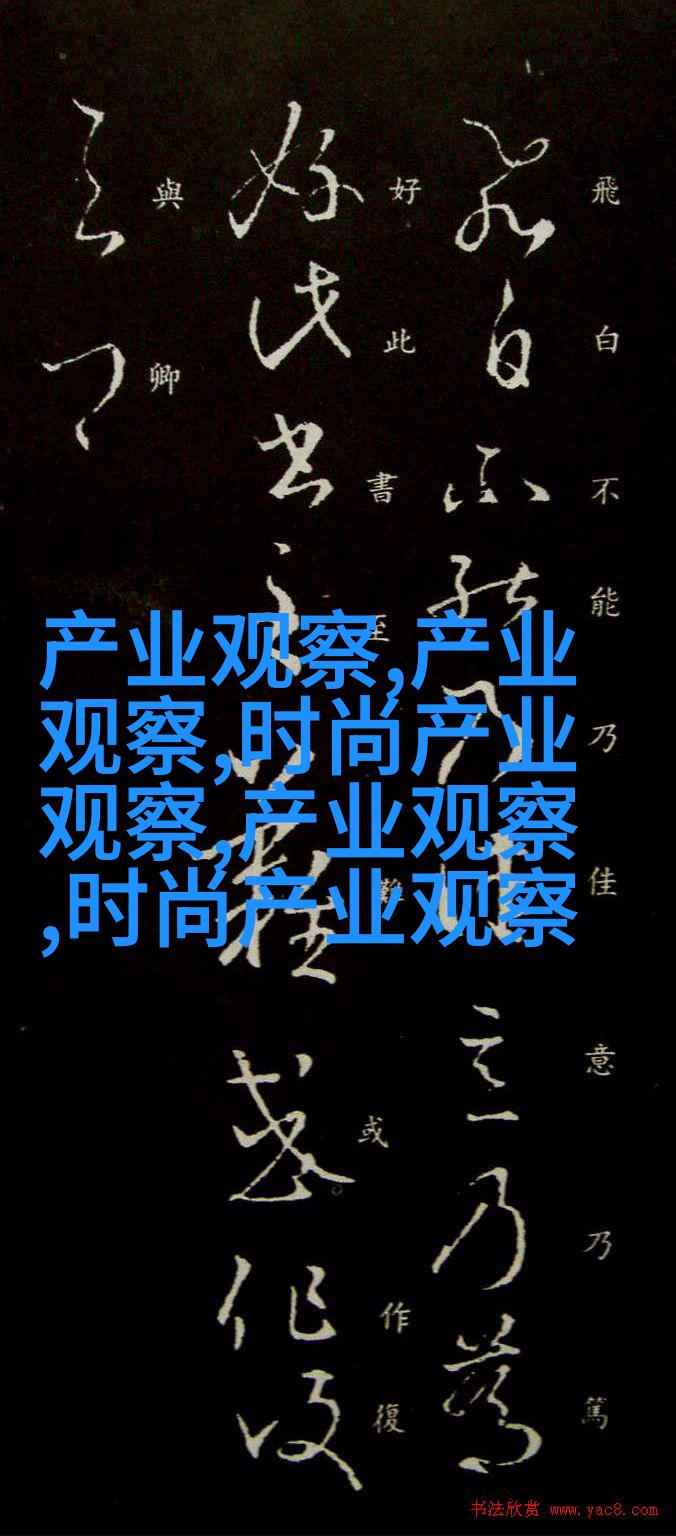 飛白不能乃佳意乃篤
好此書至難或作復
與卿
产业观察,产业
观察,时尚产业
观察,产业观察
,时尚产业观察
书法欣赏 www.yac8.com